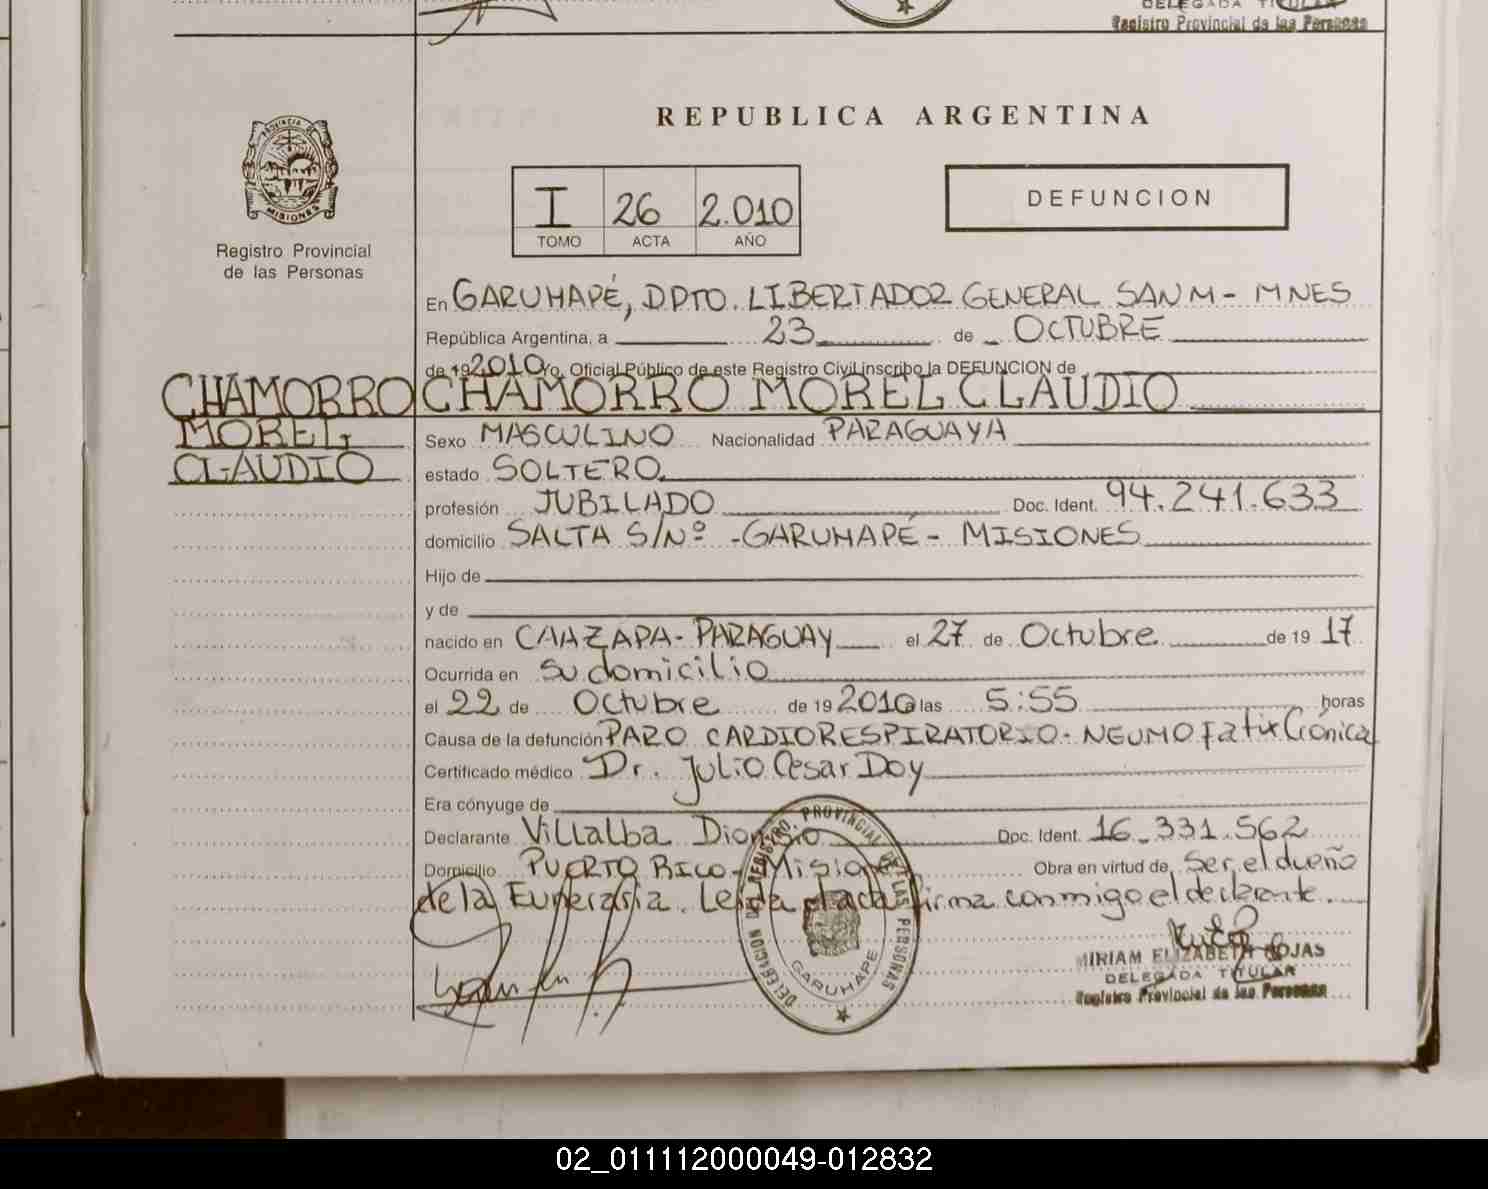 DELEGADA TITULAR
Registro Provincial de las Personas
REPUBLICA ARGENTINA
PROVINCIA DE
MISIONES
Registro Provincial
de las Personas
I 26 2.010
TOMO ACTA AÑO
DEFUNCION
En GARUHAPÉ, DPTO. LIBERTADOR GENERAL SAN M - MNES
República Argentina, a 23 de OCTUBRE
de 19 2010 Yo, Oficial Público de este Registro Civil inscribo la DEFUNCION de
CHAMORRO
MOREL
CLAUDIO
CHAMORRO MOREL CLAUDIO
Sexo MASCULINO Nacionalidad PARAGUAYA
estado SOLTERO
profesión JUBILADO Doc. Ident. 94.241.633
domicilio SALTA S/Nº - GARUHAPÉ - MISIONES
Hijo de
y de
nacido en CAAZAPA - PARAGUAY el 27 de Octubre de 19 17
Ocurrida en su domicilio
el 22 de Octubre de 19 2010 a las 5:55 horas
Causa de la defunción PARO CARDIORESPIRATORIO - NEUMO Crónica
Certificado médico Dr. Julio Cesar Doy
Era cónyuge de
Declarante Villalba Dionisio Doc. Ident. 16.331.562
Domicilio PUERTO RICO - Misiones Obra en virtud de Ser el dueño
de la Funeraria. Leida el acta firma conmigo el declarante.
DELEGACION DEL REGISTRO PROVINCIAL DE LAS PERSONAS
GARUHAPE
MIRIAM ELIZABETH ROJAS
DELEGADA TITULAR
Registro Provincial de las Personas
02_011112000049-012832